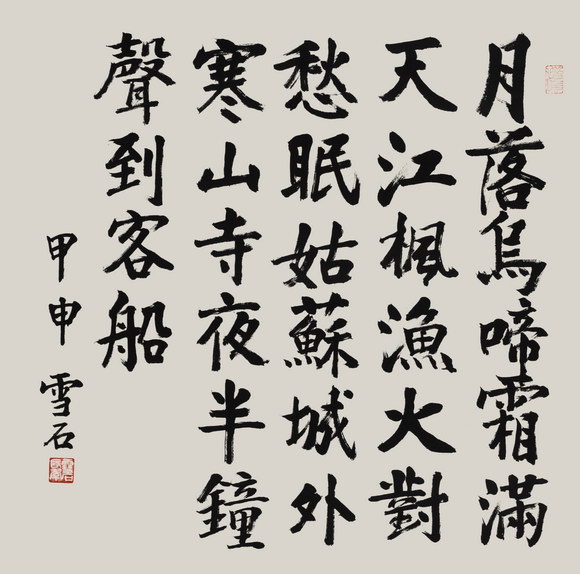 月落烏啼霜滿
天江楓漁火對
愁眠姑蘇城外
寒山寺夜半鐘
聲到客船
甲申雪石